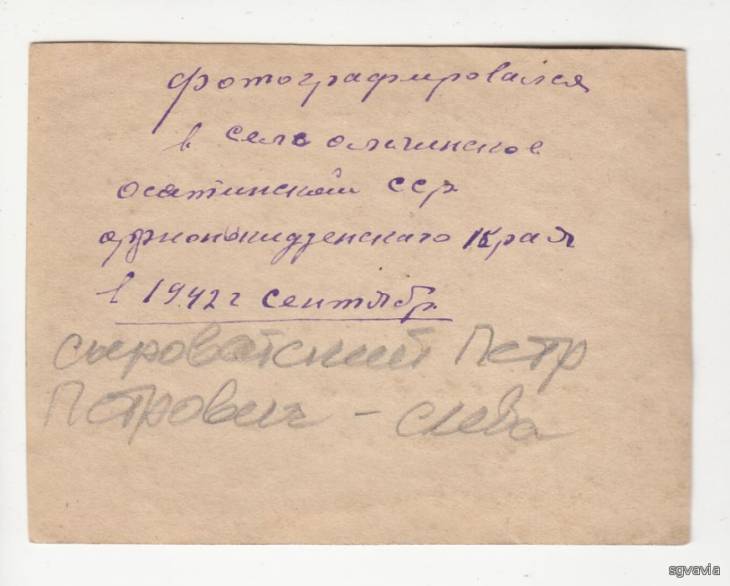 фотографировался
в село ольгинское
осатинской ССР
орджоникидзенскаго Края
в 1942 г сентябр
сыроватский Петр
Петрович - слева
sgvavia